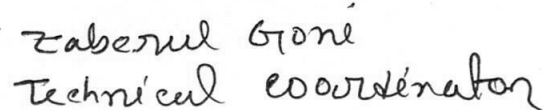 Zaberul Goni
Technical coordinator